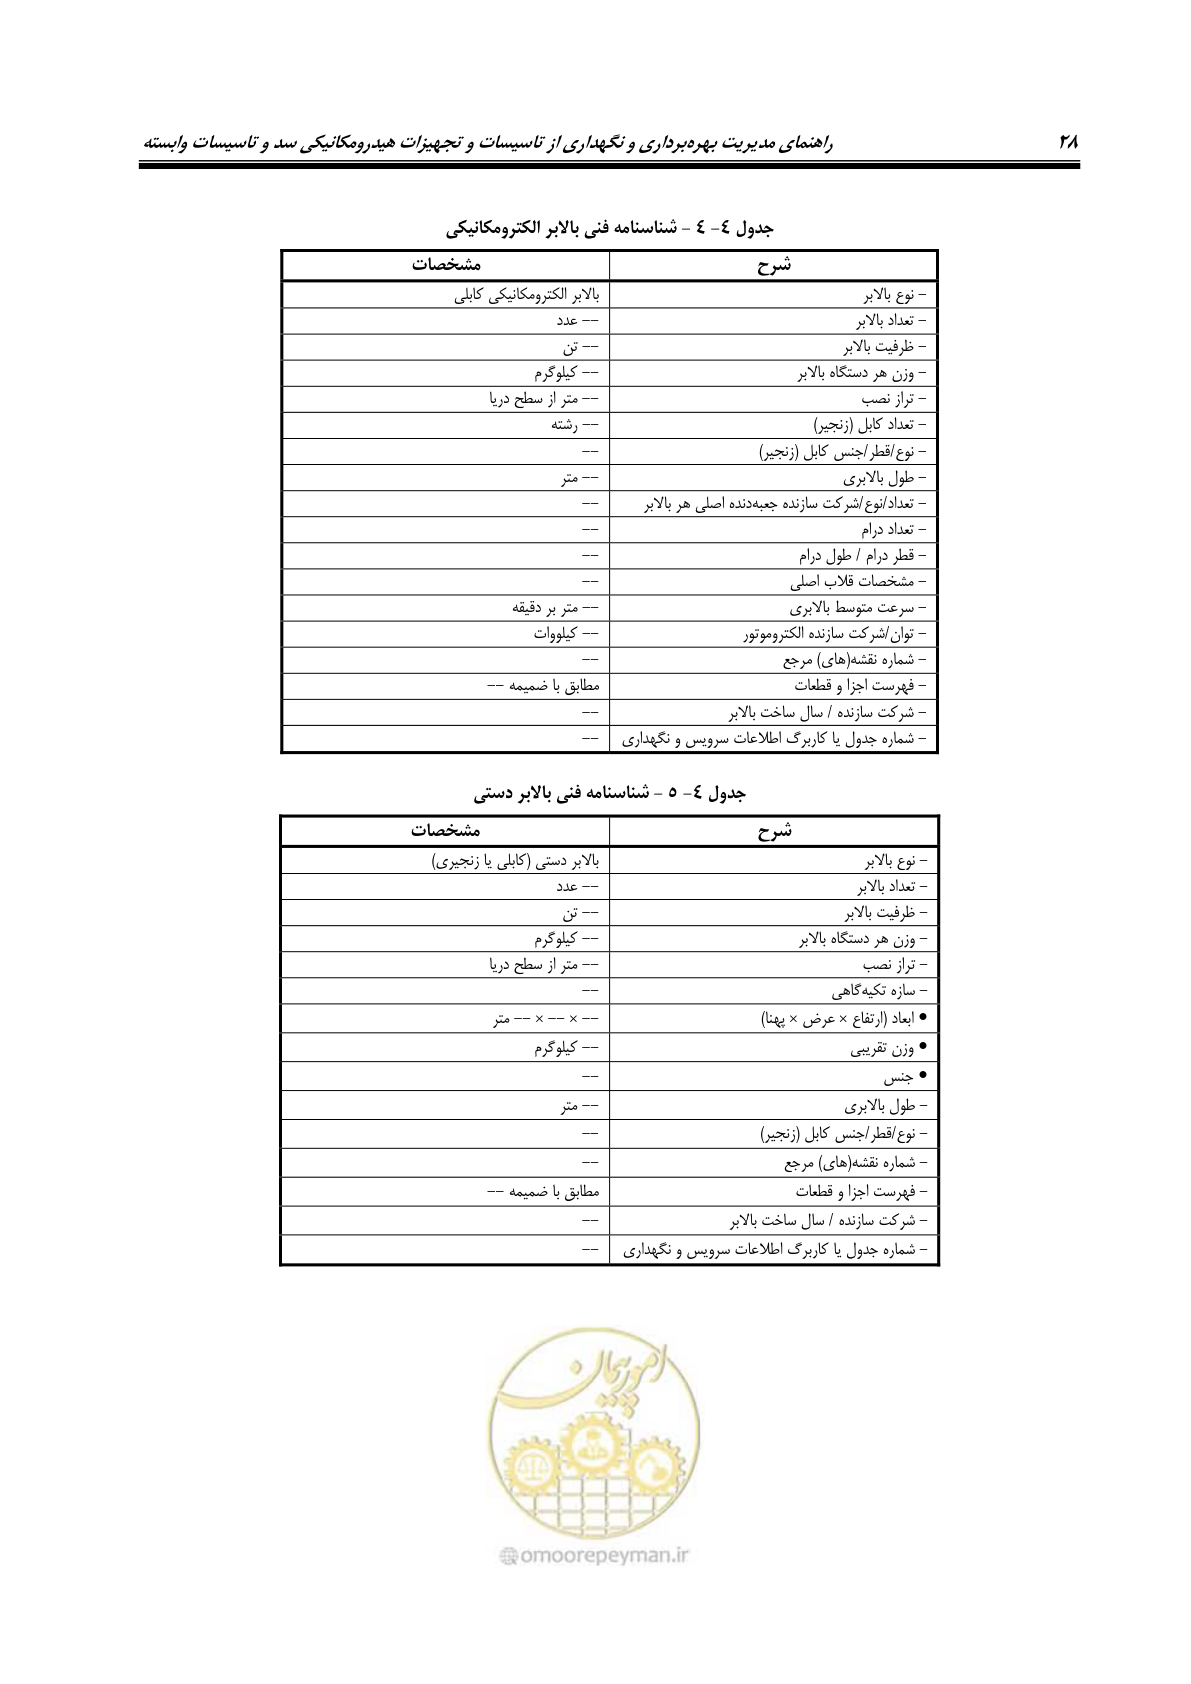 ۲۸ راهنمای مدیریت بهره‌برداری و نگهداری از تاسیسات و تجهیزات هیدرومکانیکی سد و تاسیسات وابسته
جدول ٤- ٤ - شناسنامه فنی بالابر الکترومکانیکی
شرح مشخصات
- نوع بالابر بالابر الکترومکانیکی کابلی
- تعداد بالابر -- عدد
- ظرفیت بالابر -- تن
- وزن هر دستگاه بالابر -- کیلوگرم
- تراز نصب -- متر از سطح دریا
- تعداد کابل (زنجیر) -- رشته
- نوع/قطر/جنس کابل (زنجیر) --
- طول بالابری -- متر
- تعداد/نوع/شرکت سازنده جعبه‌دنده اصلی هر بالابر --
- تعداد درام --
- قطر درام / طول درام --
- مشخصات قلاب اصلی --
- سرعت متوسط بالابری -- متر بر دقیقه
- توان/شرکت سازنده الکتروموتور -- کیلووات
- شماره نقشه(های) مرجع --
- فهرست اجزا و قطعات مطابق با ضمیمه --
- شرکت سازنده / سال ساخت بالابر --
- شماره جدول یا کاربرگ اطلاعات سرویس و نگهداری --
جدول ٤- ٥ - شناسنامه فنی بالابر دستی
شرح مشخصات
- نوع بالابر بالابر دستی (کابلی یا زنجیری)
- تعداد بالابر -- عدد
- ظرفیت بالابر -- تن
- وزن هر دستگاه بالابر -- کیلوگرم
- تراز نصب -- متر از سطح دریا
- سازه تکیه‌گاهی --
• ابعاد (ارتفاع × عرض × پهنا) -- × -- × -- متر
• وزن تقریبی -- کیلوگرم
• جنس --
- طول بالابری -- متر
- نوع/قطر/جنس کابل (زنجیر) --
- شماره نقشه(های) مرجع --
- فهرست اجزا و قطعات مطابق با ضمیمه --
- شرکت سازنده / سال ساخت بالابر --
- شماره جدول یا کاربرگ اطلاعات سرویس و نگهداری --
امور پیمان
omoorepeyman.ir